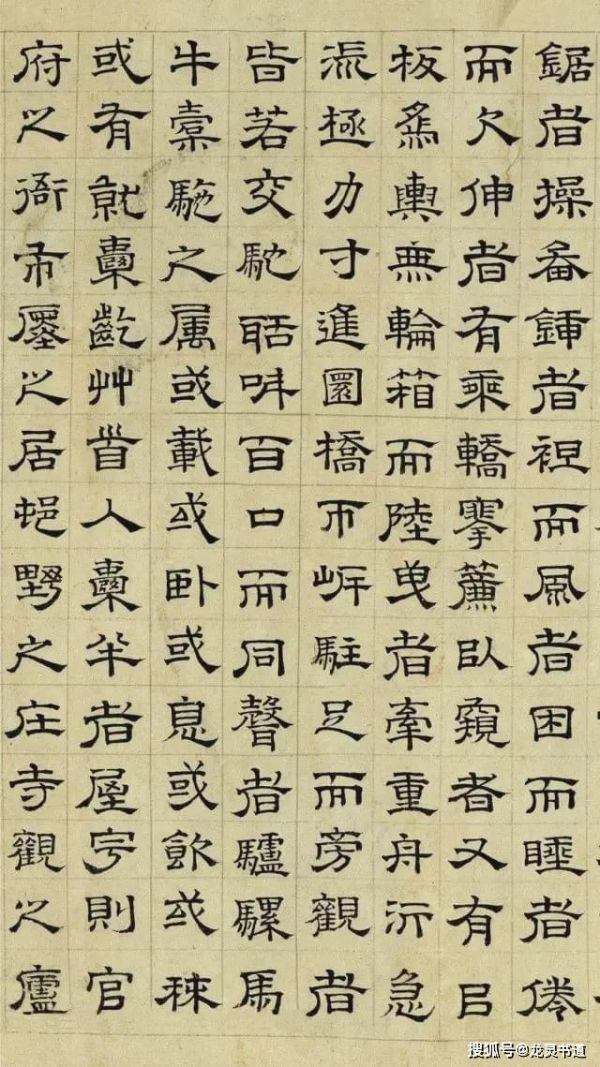 鋸者操畚鍤者袒而風者困而睡者倦
而欠伸者有乘轎搴簾臥窺者又有㠯
板爲輿無輪箱而陸曳者牽重舟泝急
流極力寸進圜橋匝岸駐足而旁觀者
皆若交馳聒叫百口而同聲者驢騾馬
牛橐駞之属或載或臥或息或飲或秣
或有就囊齕艸首入囊半者屋宇則官
府之衙市廛之居邨野之庄寺觀之廬
搜狐号@龙灵书道